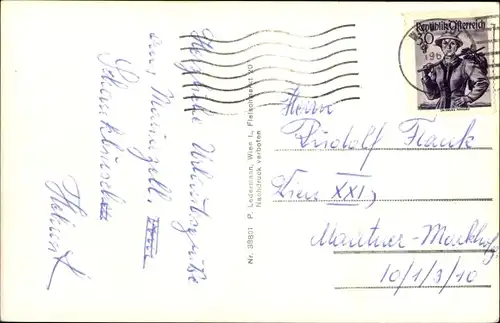 Herzliche Urlaubsgrüße
aus Mariazell.
Helmut
Nr. 38801 P. Ledermann, Wien I., Fleischmarkt 20
Nachdruck verboten
Republik Österreich
50
196
Herrn
Rudolf Frank
Wien XXI,
Mautner-Markhofg.
10/1/3/10